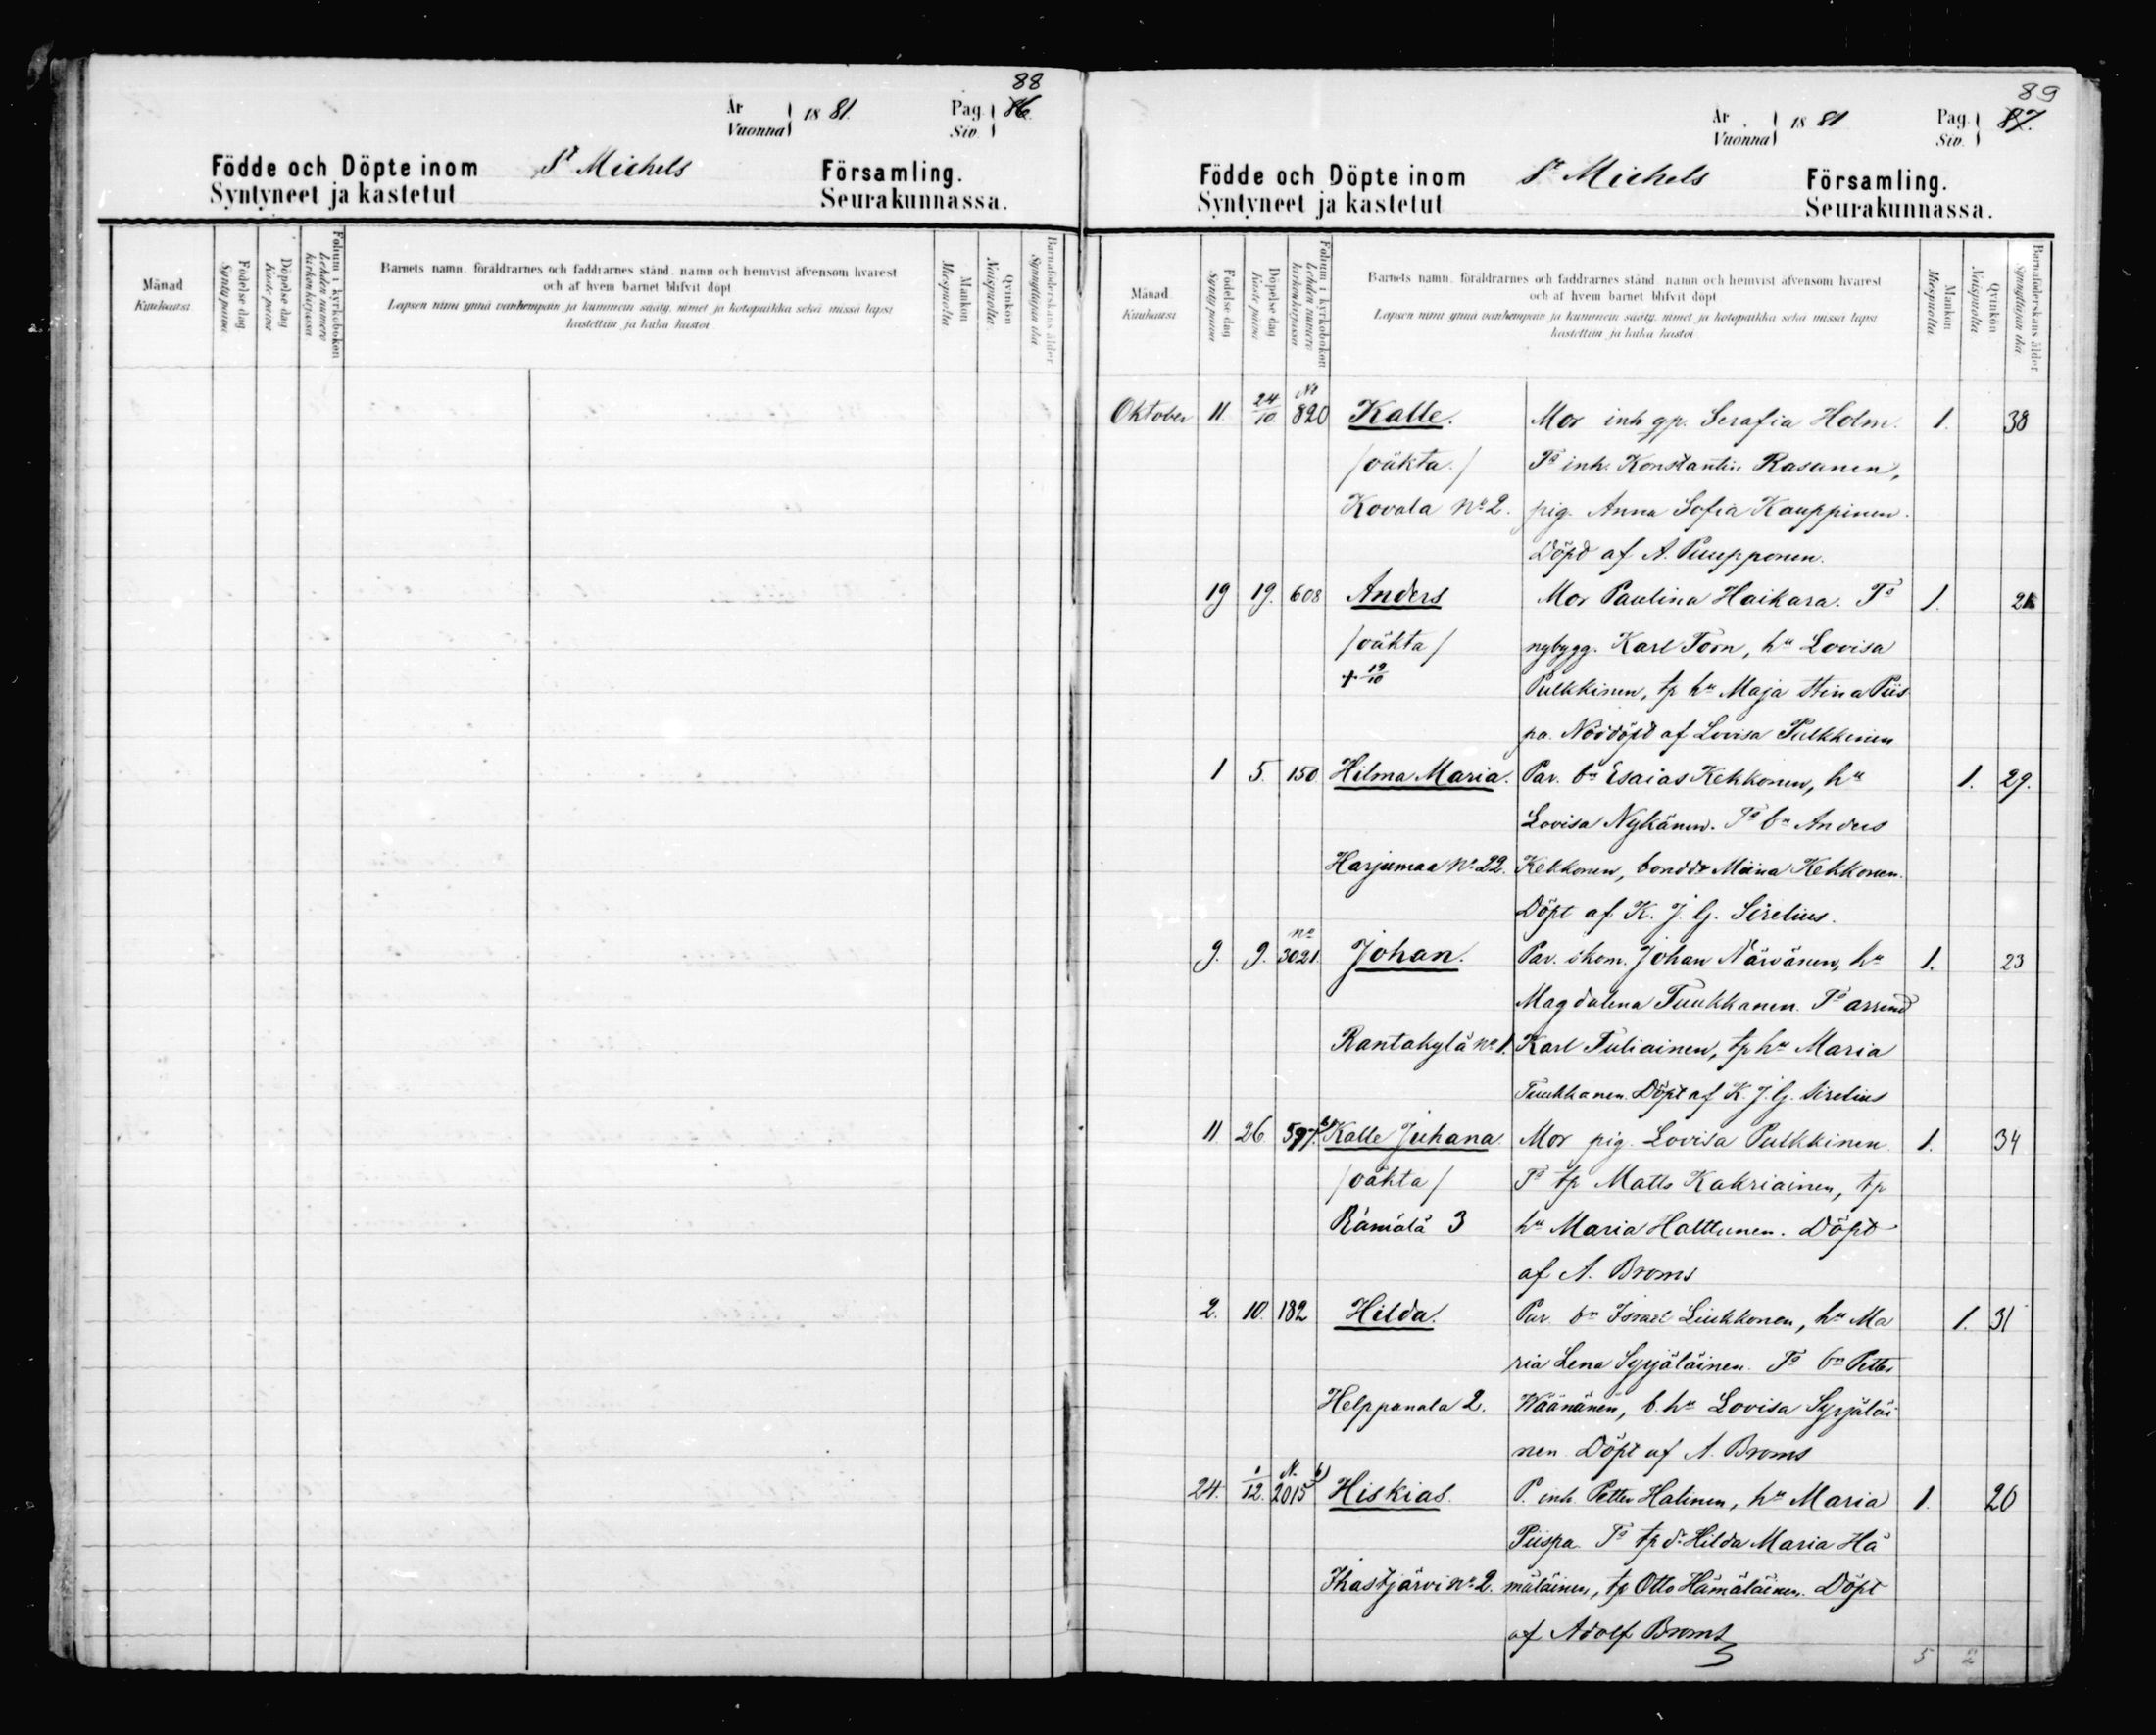 88
År Vuonna 1881. Pag. Siv. 86.
Födde och Döpte inom St Michels Församling.
Syntyneet ja kastetut Seurakunnassa.
Månad Kuukausi
Födelse dag Synty päivä
Döpelse dag Kaste päivä
Folium i kyrkoboken Lehden numero kirkonkirjassa
Barnets namn, föräldrarnes och faddrarnes stånd, namn och hemvist äfvensom hvarest
och af hvem barnet blifvit döpt
Lapsen nimi ynnä vanhempain ja kummein sääty, nimet ja kotopaikka sekä missä lapsi
kastettiin ja kuka kastoi
Mankön Miespuolta
Qvinkön Naispuolta
Barnaföderskans ålder Synnyttäjän ikä
89
År Vuonna 1881 Pag. Siv. 87.
Födde och Döpte inom St Michels Församling.
Syntyneet ja kastetut Seurakunnassa.
Månad Kuukausi
Födelse dag Synty päivä
Döpelse dag Kaste päivä
Folium i kyrkoboken Lehden numero kirkonkirjassa
Barnets namn, föräldrarnes och faddrarnes stånd, namn och hemvist äfvensom hvarest
och af hvem barnet blifvit döpt
Lapsen nimi ynnä vanhempain ja kummein sääty, nimet ja kotopaikka sekä missä lapsi
kastettiin ja kuka kastoi
Mankön Miespuolta
Qvinkön Naispuolta
Barnaföderskans ålder Synnyttäjän ikä
Oktober 11. 24/10. No 820 Kalle. Mor inh gp. Serafia Holm. 1. 38
/oäkta./ Ts inh. Konstantin Rasanen,
Kovala No 2. pig. Anna Sofia Kauppinen.
Döpd af A. Puupponen.
19 19. 608 Anders Mor Paulina Haikara. Ts 1. 21
/oäkta/ nybygg. Karl Torn, hu Lovisa
+ 19/10 Pulkkinen, tp hu Maja Stina Piis
pa. Nöddöpt af Lovisa Pulkkinen
1 5. 150 Hilma Maria. Par. bn Esaias Kekkonen, hu 1. 29.
Lovisa Nykänen. Ts bn Anders
Harjumaa No 22. Kekkonen, bonddr Miina Kekkonen.
Döpt af K. J. G. Sirelius.
9. 9. no 3021. Johan. Par. skom. Johan Närvänen, hu 1. 23
Magdalena Tuukkanen. Ts arrend
Rantakylä no 1. Karl Tuliainen, tp hu Maria
Tuukkanen. Döpt af K. J. G. Sirelius
11 26. 597. b) Kalle Juhana. Mor pig. Lovisa Pulkkinen 1. 34
/oäkta/ Ts tp Matts Kakriainen, tp
Rämälä 3 hu Maria Halttunen. Döpt
af A. Broms
2. 10. 182 Hilda. Par. bn Israel Liukkonen, hu Ma 1. 31
ria Lena Syrjäläinen. Ts bn Petter
Helppanala 2. Wäänänen, b. hu Lovisa Syrjäläi
nen. Döpt af A. Broms
24. 1/12. N. 2015 b) Hiskias. P. inh. Petter Halinen, hu Maria 1. 26
Piispa. Ts tp dr Hilda Maria Hä
Ihastjärvi no 2. mäläinen, tp Otto Hämäläinen. Döpt
af Adolf Broms
5 2